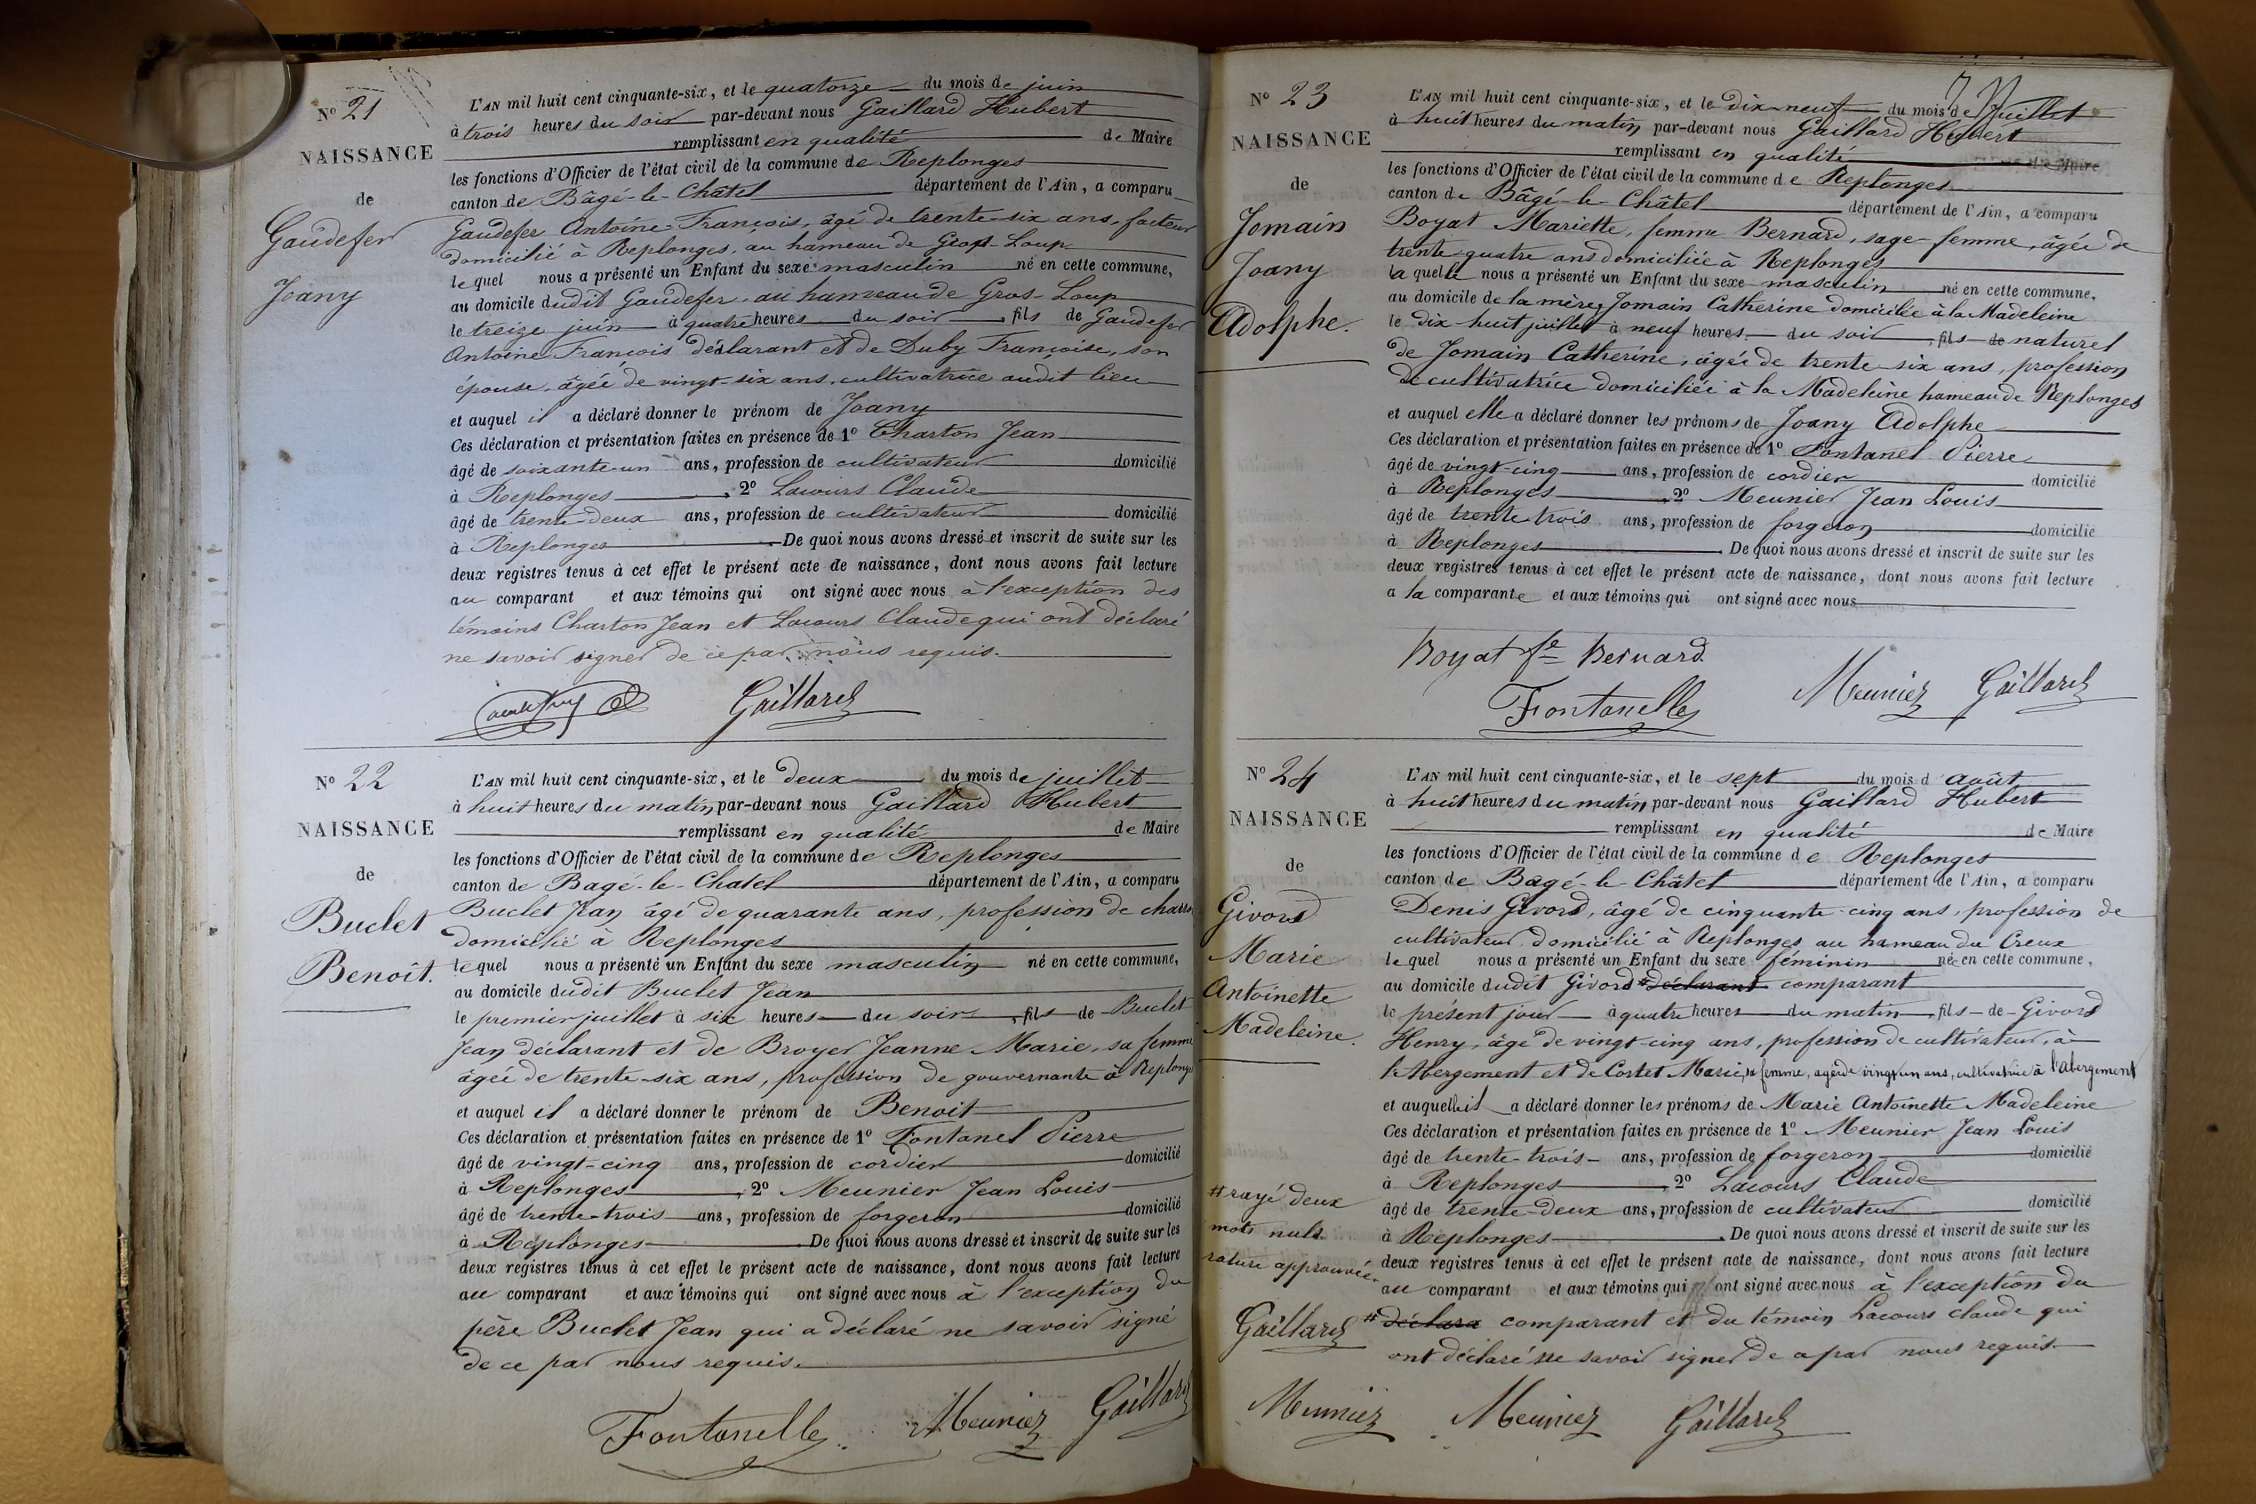 N° 21
NAISSANCE
de
Gaudefer
Joany
L'AN mil huit cent cinquante-six, et le quatorze du mois de juin
à trois heures du soir par-devant nous Gaillard Hubert
remplissant en qualité de Maire
les fonctions d'Officier de l'état civil de la commune de Replonges
canton de Bâgé-le-Châtel département de l'Ain, a comparu
Gaudefer Antoine-François, âgé de trente-six ans, facteur
domicilié à Replonges, au hameau de Gros-Loup
le quel nous a présenté un Enfant du sexe masculin né en cette commune,
au domicile dudit Gaudefer au hameau de Gros-Loup
le treize juin à quatre heures du soir, fils de Gaudefer
Antoine-François déclarant et de Duby Françoise, son
épouse, âgée de vingt-six ans, cultivatrice audit lieu
et auquel il a déclaré donner le prénom de Joany
Ces déclaration et présentation faites en présence de 1° Charton Jean
âgé de soixante-un ans, profession de cultivateur domicilié
à Replonges, 2° Lacours Claude
âgé de trente-deux ans, profession de cultivateur domicilié
à Replonges. De quoi nous avons dressé et inscrit de suite sur les
deux registres tenus à cet effet le présent acte de naissance, dont nous avons fait lecture
au comparant et aux témoins qui ont signé avec nous à l'exception des
témoins Charton Jean et Lacours Claude qui ont déclaré
ne savoir signer de ce par nous requis.
Gaillard
N° 22
NAISSANCE
de
Buclet
Benoît.
L'AN mil huit cent cinquante-six, et le deux du mois de juillet
à huit heures du matin par-devant nous Gaillard Hubert
remplissant en qualité de Maire
les fonctions d'Officier de l'état civil de la commune de Replonges
canton de Bagé-le-Chatel département de l'Ain, a comparu
Buclet Jean âgé de quarante ans, profession de charron
domicilié à Replonges
le quel nous a présenté un Enfant du sexe masculin né en cette commune,
au domicile dudit Buclet Jean
le premier juillet à six heures du soir, fils de Buclet
Jean déclarant et de Broyer Jeanne Marie, sa femme
âgée de trente-six ans, profession de gouvernante à Replonges
et auquel il a déclaré donner le prénom de Benoit
Ces déclaration et présentation faites en présence de 1° Fontanel Pierre
âgé de vingt-cinq ans, profession de cordier domicilié
à Replonges, 2° Meunier Jean Louis
âgé de trente-trois ans, profession de forgeron domicilié
à Replonges. De quoi nous avons dressé et inscrit de suite sur les
deux registres tenus à cet effet le présent acte de naissance, dont nous avons fait lecture
au comparant et aux témoins qui ont signé avec nous à l'exception du
père Buclet Jean qui a déclaré ne savoir signé
de ce par nous requis.
Fontanelle Meunier Gaillard
N° 23
NAISSANCE
de
Jomain
Joany
Adolphe.
L'AN mil huit cent cinquante-six, et le dix-neuf du mois de Juillet
à huit heures du matin par-devant nous Gaillard Hubert
remplissant en qualité de Maire
les fonctions d'Officier de l'état civil de la commune de Replonges
canton de Bâgé-le-Châtel département de l'Ain, a comparu
Boyat Mariette, femme Bernard, sage-femme, âgée de
trente quatre ans domiciliée à Replonges
la quelle nous a présenté un Enfant du sexe masculin né en cette commune,
au domicile de la mère Jomain Catherine domiciliée à la Madeleine
le dix-huit juillet à neuf heures du soir, fils de naturel
de Jomain Catherine, âgée de trente-six ans, profession
de cultivatrice domiciliée à la Madeleine hameau de Replonges
et auquel elle a déclaré donner les prénoms de Joany Adolphe
Ces déclaration et présentation faites en présence de 1° Fontanel Pierre
âgé de vingt-cinq ans, profession de cordier domicilié
à Replonges, 2° Meunier Jean Louis
âgé de trente trois ans, profession de forgeron domicilié
à Replonges. De quoi nous avons dressé et inscrit de suite sur les
deux registres tenus à cet effet le présent acte de naissance, dont nous avons fait lecture
a la comparante et aux témoins qui ont signé avec nous
Boyat fe Bernard
Fontanelle Meunier Gaillard
N° 24
NAISSANCE
de
Givord
Marie
Antoinette
Madeleine.
L'AN mil huit cent cinquante-six, et le sept du mois d'août
à huit heures du matin par-devant nous Gaillard Hubert
remplissant en qualité de Maire
les fonctions d'Officier de l'état civil de la commune de Replonges
canton de Bagé-le-Châtel département de l'Ain, a comparu
Denis Givord, âgé de cinquante-cinq ans, profession de
cultivateur domicilié à Replonges au hameau du Creux
le quel nous a présenté un Enfant du sexe féminin né en cette commune,
au domicile dudit Givord # déclarant comparant
le présent jour à quatre heures du matin, fils de Givord
Henry, âgé de vingt-cinq ans, profession de cultivateur, à
l'Abergement et de Cortet Marie, sa femme, agée de vingt un ans, cultivatrice à l'abergement
et auquel il a déclaré donner les prénoms de Marie Antoinette Madeleine
Ces déclaration et présentation faites en présence de 1° Meunier Jean Louis
âgé de trente-trois ans, profession de forgeron domicilié
à Replonges, 2° Lacours Claude
âgé de trente-deux ans, profession de cultivateur domicilié
à Replonges. De quoi nous avons dressé et inscrit de suite sur les
deux registres tenus à cet effet le présent acte de naissance, dont nous avons fait lecture
au comparant et aux témoins qui ont signé avec nous à l'exception du
# déclara comparant et du témoin Lacours Claude qui
ont déclaré ne savoir signer de ce par nous requis.
# rayé deux
mots nuls
rature approuvée.
Gaillard
Meunier Meunier Gaillard